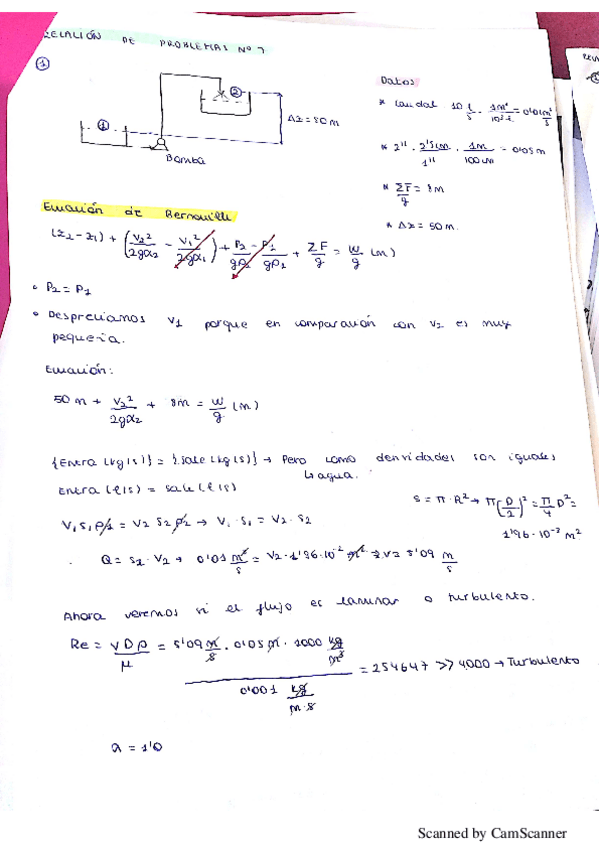 RELACIÓN DE PROBLEMAS Nº 7
①
① ② Δz = 50 m
Bomba
Datos
* Caudal 10 l/s · 1m³/10³ l = 0'01 m³/s
* 2" · 2'5 cm/1" · 1m/100 cm = 0'05 m
* ΣF/g = 8m
* Δz = 50 m.
Ecuación de Bernouilli
(z₂ - z₁) + (v₂²/2gα₂ - v₁²/2gα₁) + P₂/gρ₂ - P₁/gρ₁ + ΣF/g = W/g (m)
• P₂ = P₁
• Despreciamos v₁ porque en comparación con v₂ es muy
pequeña.
Ecuación:
50 m + v₂²/2gα₂ + 8m = W/g (m)
{Entra (kg/s)} = {Sale (kg/s)} → Pero como densidades son iguales
↳ agua.
Entra (l/s) = sale (l/s)
S = π · R² → π(D/2)² = π/4 D² =
1'96 · 10⁻³ m²
V₁ S₁ ρ₁ = V₂ S₂ ρ₂ → V₁ · S₁ = V₂ · S₂
· Q = S₂ · V₂ → 0'01 m³/s = V₂ · 1'96 · 10⁻² m² → v = 5'09 m/s
Ahora veremos si el flujo es laminar o turbulento.
Re = v D ρ/μ = 5'09 m/s · 0'05 m · 1000 kg/m³ / 0'001 kg/m·s = 254647 >> 4000 → Turbulento
α = 1'0
Scanned by CamScanner